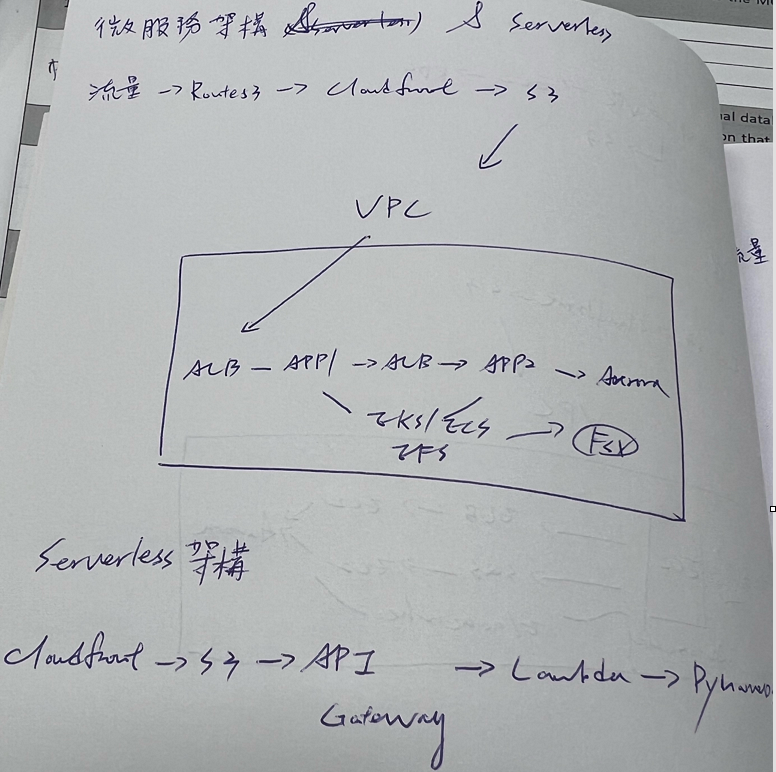 微服務架構 & Serverless
流量 → Route53 → Cloudfront → S3
VPC
ALB — APP1 → ALB → APP2 → Aurora
EKS/ECS → FSX
EFS
Serverless 架構
Cloudfront → S3 → API → Lambda → Dynamo
Gateway
al data
on that
流量